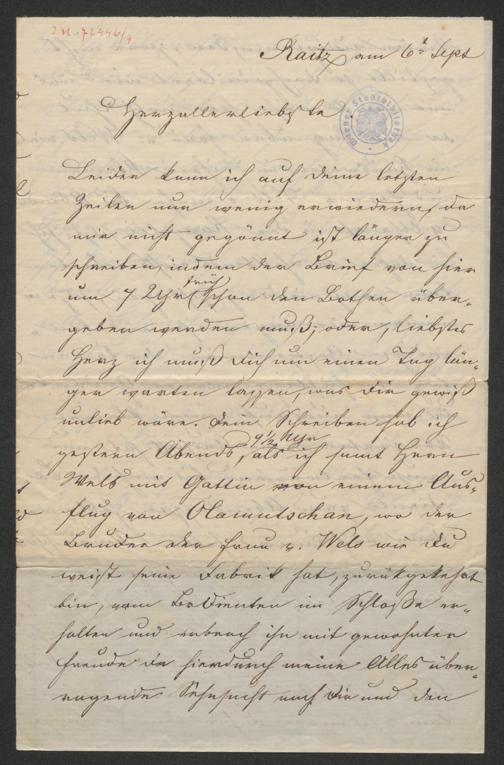 I.N. 72446/9
Raitz am 6t Sept
Herzallerliebste!
Leider kann ich auf deine letzten
Zeilen nur wenig erwiedern, da
mir nicht gegönnt ist länger zu
schreiben, indem der Brief von hier
um 7 Uhr früh schon den Bothen über-
geben werden muß; oder, liebstes
Herz ich muß dich um einen Tag län-
ger warten lassen, was dir gewiß
unlieb wäre. Dein Schreiben hab ich
gestern Abends, 9½ Uhr als ich sammt Herrn
Wels mit Gattin von einem Aus-
flug von Olomutschan, wo der
Bruder der Frau v. Wels wie du
weist seine Fabrik hat, zurückgekehrt
bin, vom Bedienten im Schloße er-
halten und erbrach ihn mit gewohnter
Freude da hierdurch meine Alles über-
ragende Sehnsucht nach dir und den